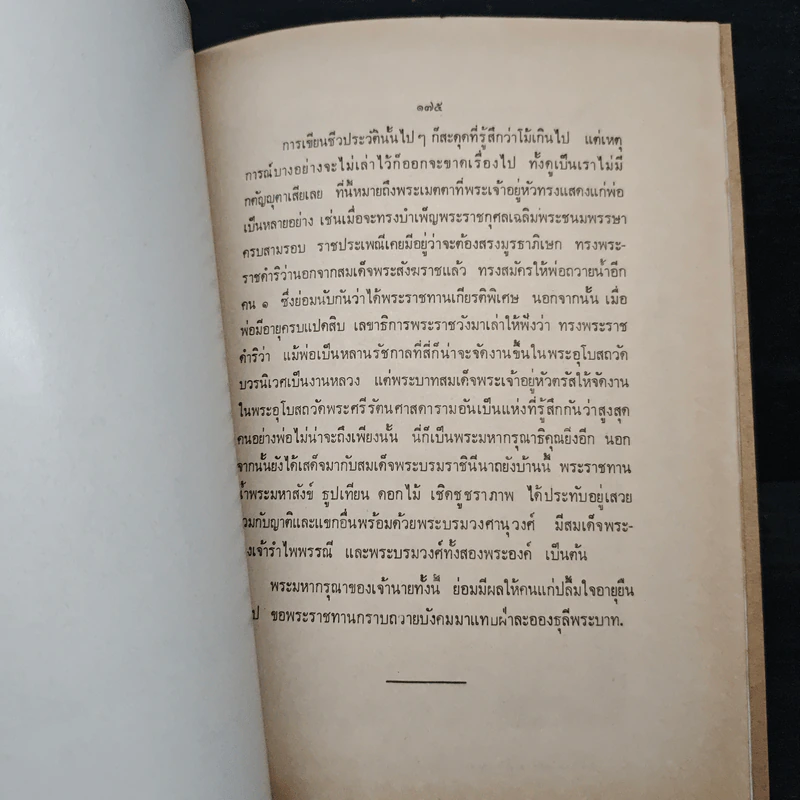 ๑๗๕
การเขียนชีวประวัตินั้นไป ๆ ก็สะดุดที่รู้สึกว่าโม้เกินไป แต่เหตุ
การณ์บางอย่างจะไม่เล่าไว้ก็ออกจะขาดเรื่องไป ทั้งดูเป็นเราไม่มี
กตัญญุตาเสียเลย ที่นี้หมายถึงพระเมตตาที่พระเจ้าอยู่หัวทรงแสดงแก่พ่อ
เป็นหลายอย่าง เช่นเมื่อจะทรงบำเพ็ญพระราชกุศลเฉลิมพระชนมพรรษา
ครบสามรอบ ราชประเพณีเคยมีอยู่ว่าจะต้องสรงมูรธาภิเษก ทรงพระ-
ราชดำริว่านอกจากสมเด็จพระสังฆราชแล้ว ทรงสมัครให้พ่อถวายน้ำอีก
คน ๑ ซึ่งย่อมนับกันว่าได้พระราชทานเกียรติพิเศษ นอกจากนั้น เมื่อ
พ่อมีอายุครบแปดสิบ เลขาธิการพระราชวังมาเล่าให้ฟังว่า ทรงพระราช
ดำริว่า แม้พ่อเป็นหลานรัชกาลที่สี่ก็น่าจะจัดงานขึ้นในพระอุโบสถวัด
บวรนิเวศเป็นงานหลวง แต่พระบาทสมเด็จพระเจ้าอยู่หัวตรัสให้จัดงาน
ในพระอุโบสถวัดพระศรีรัตนศาสดารามอันเป็นแห่งที่รู้สึกกันว่าสูงสุด
คนอย่างพ่อไม่น่าจะถึงเพียงนั้น นี่ก็เป็นพระมหากรุณาธิคุณยิ่งอีก นอก
จากนั้นยังได้เสด็จมากับสมเด็จพระบรมราชินีนาถยังบ้านนี้ พระราชทาน
้ำพระมหาสังข์ ธูปเทียน ดอกไม้ เชิดชูชราภาพ ได้ประทับอยู่เสวย
วมกับญาติและแขกอื่นพร้อมด้วยพระบรมวงศานุวงศ์ มีสมเด็จพระ-
งเจ้ารำไพพรรณี และพระบรมวงศ์ทั้งสองพระองค์ เป็นต้น
พระมหากรุณาของเจ้านายทั้งนี้ ย่อมมีผลให้คนแก่ปลื้มใจอายุยืน
ป ขอพระราชทานกราบถวายบังคมมาแทบฝ่าละอองธุลีพระบาท.